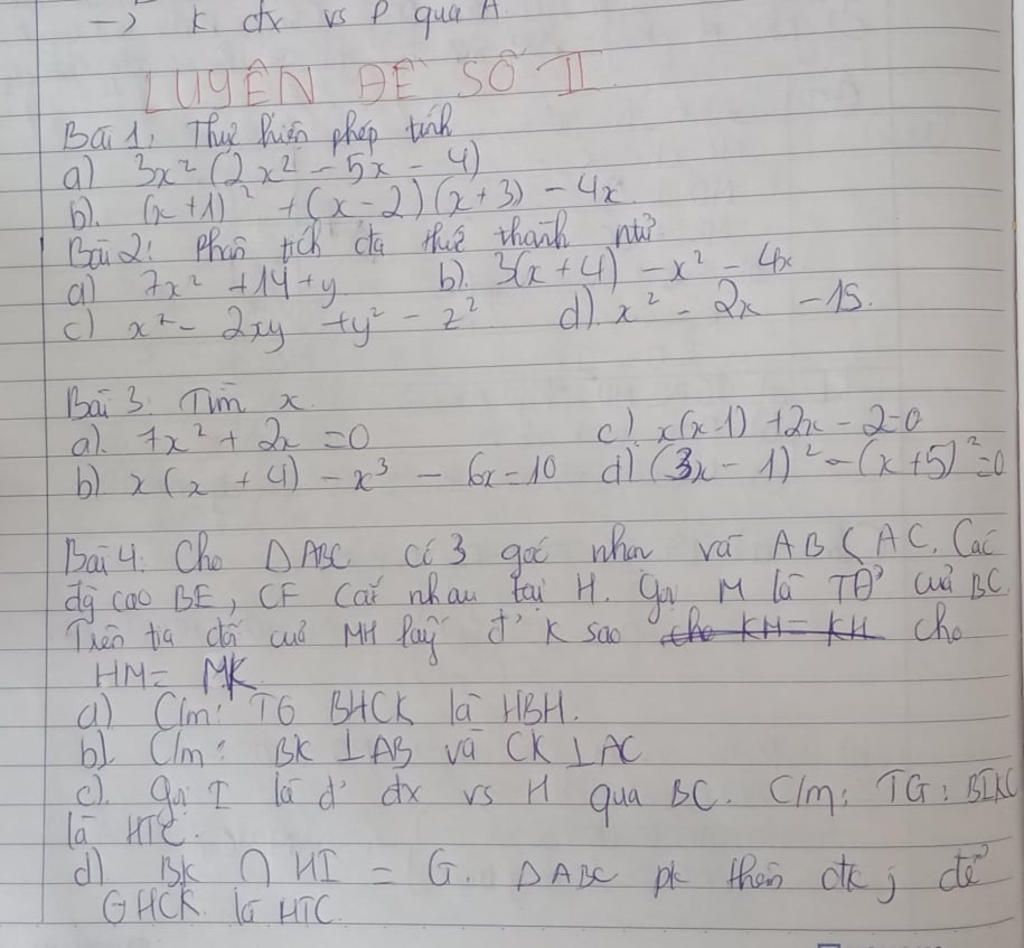 -> K đx vs P qua A
LUYỆN ĐỀ SỐ II
Bài 1. Thực hiện phép tính
a) 3x² (2x² - 5x - 4)
b). (x+1)² + (x-2)(x+3) - 4x
Bài 2: Phân tích đa thức thành ntử
a) 7x² + 14 + y b). 3(x+4) - x² - 4x
c) x² - 2xy + y² - z² d). x² - 2x - 15.
Bài 3. Tìm x.
a). 7x² + 2x = 0 c). x(x-1) + 2x - 2 = 0
b) x(x+4) - x³ - 6x = 10 d) (3x-1)² - (x+5)² = 0
Bài 4: Cho ΔABC có 3 góc nhọn và AB < AC. Các
đg cao BE, CF cắt nhau tại H. Gọi M là TĐ' cuả BC.
Trên tia đối cuả MH lấy đ' K sao cho KH = KH cho
HM = MK
a) C/m: TG BHCK là HBH.
b). C/m: BK ⊥ AB và CK ⊥ AC
c). Gọi I là đ' đx vs H qua BC. C/m: TG: BIKC
là HTC.
d) BK ∩ HI = G. ΔABC pk thêm đk j để
GHCK là HTC.